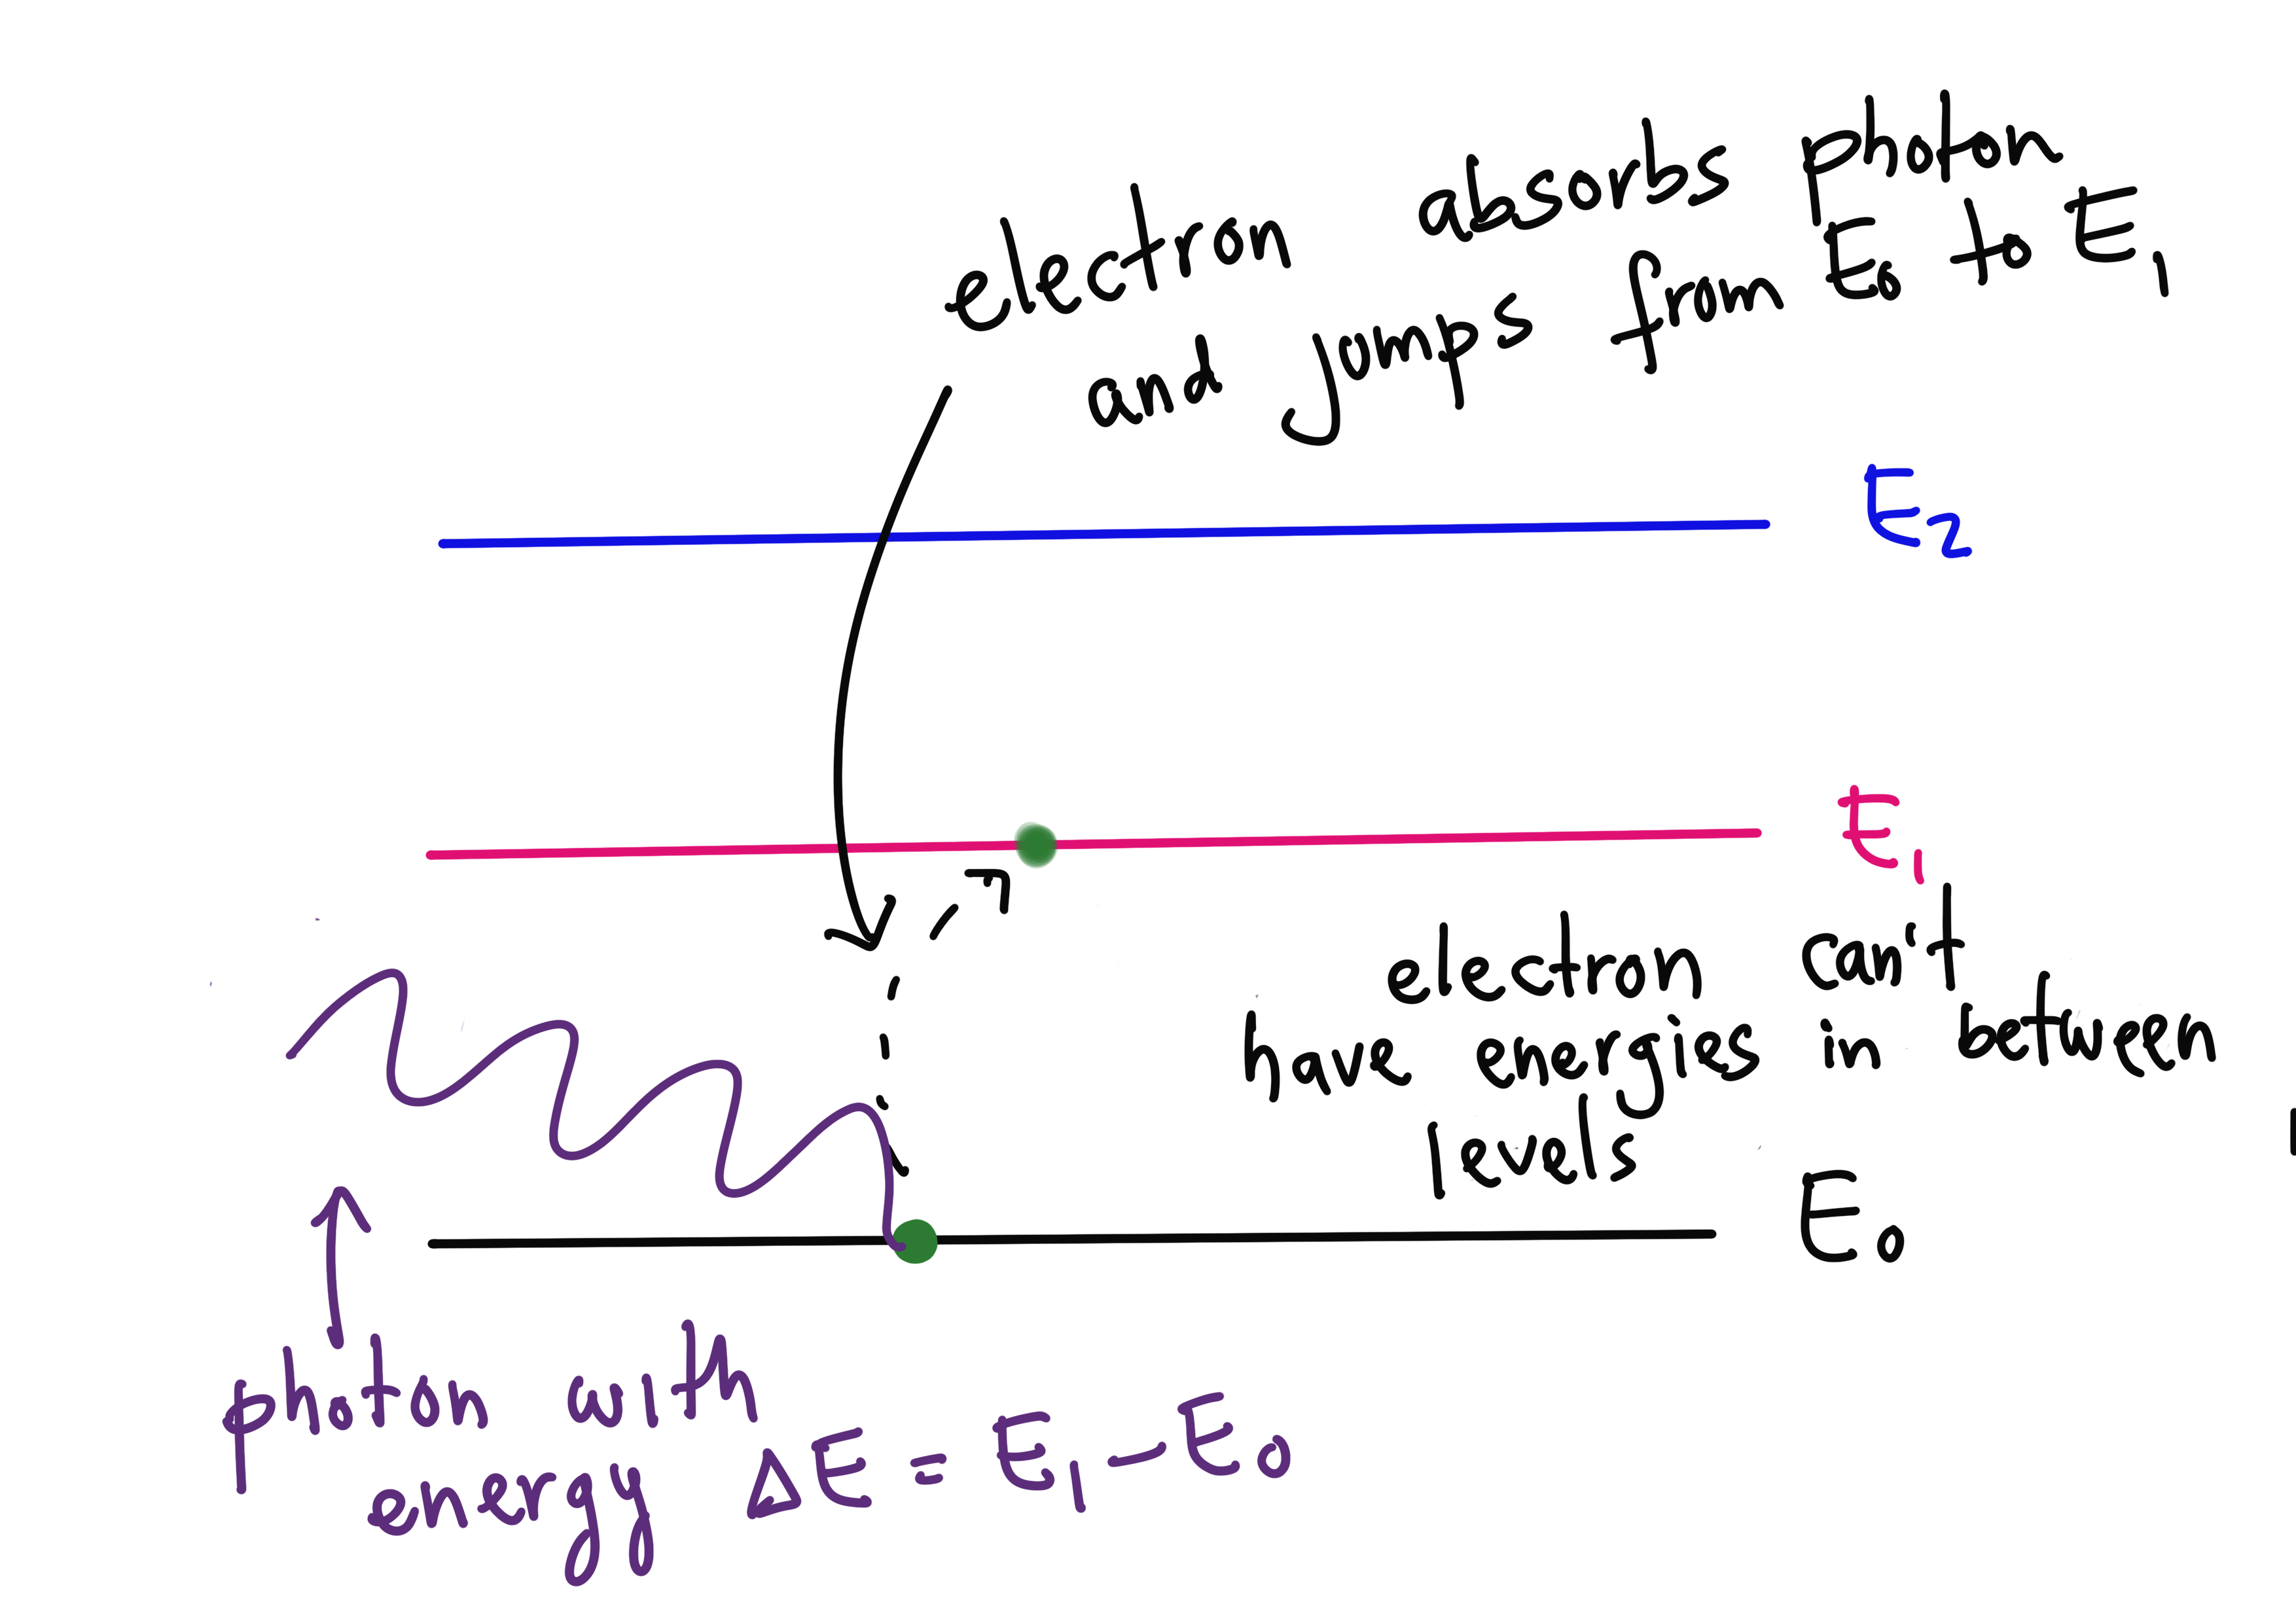 electron absorbs photon
and jumps from E₀ to E₁
E₂
E₁
electron can't
have energies in between
levels
E₀
photon with
energy ΔE = E₁ – E₀